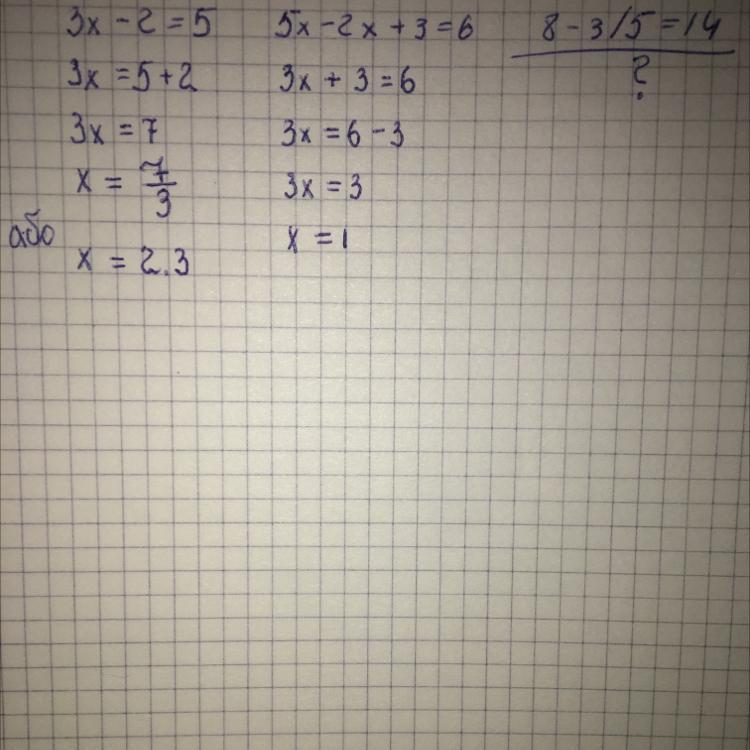 3x - 2 = 5
3x = 5 + 2
3x = 7
x = 7/3
або
x = 2.3
5x - 2x + 3 = 6
3x + 3 = 6
3x = 6 - 3
3x = 3
x = 1
8 - 3/5 = 14
?